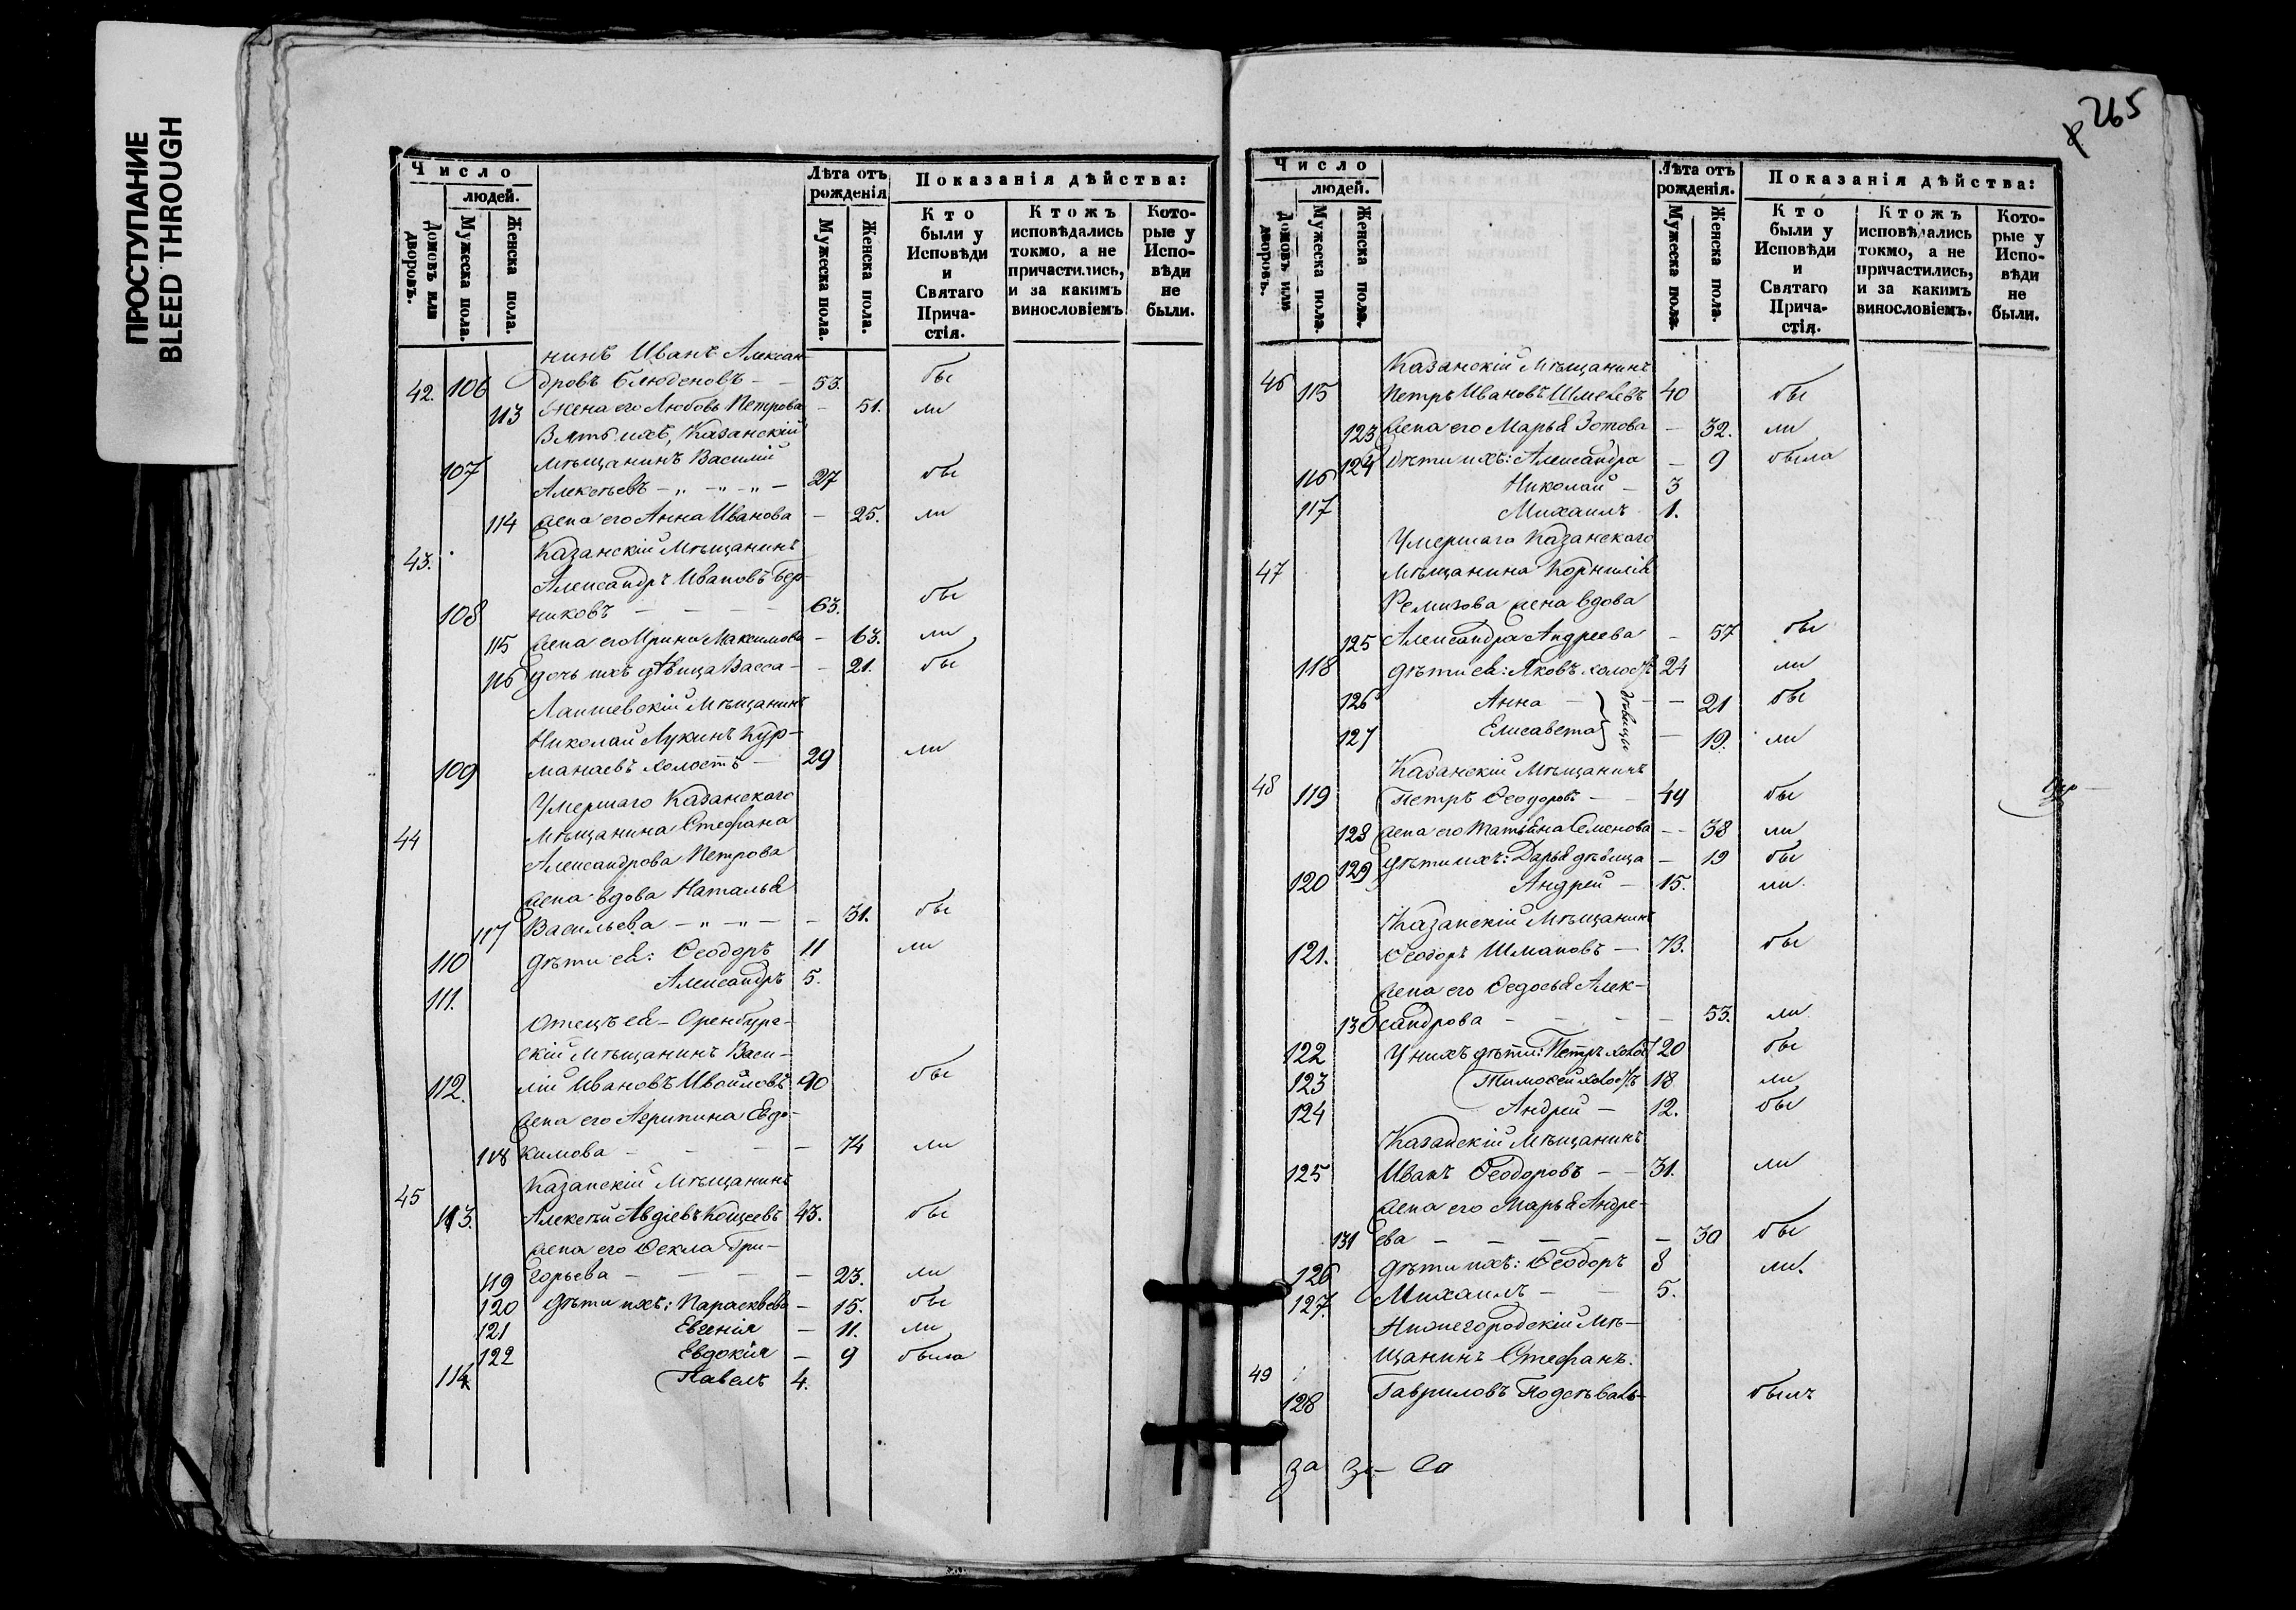 ПРОСТУПАНИЕ
BLEED THROUGH
Число
людей.
Домовъ или дворовъ.
Мужеска пола.
Женска пола.
Лѣта отъ рожденія
Мужеска пола.
Женска пола.
Показанія дѣйства:
Кто были у Исповѣди и Святаго Прича-стія.
Ктожъ исповѣдались токмо, а не причастились, и за какимъ винословіемъ
Кото-рые у Испо-вѣди не были.
нинъ Иванъ Алексан-
42. 106 дровъ Блюденовъ - - 53. бы
113 жена его Любовь Петрова - 51. ли
Зять ихъ, Казанскій
107 мѣщанинъ Василій
Алексѣевъ - „ - „ - „ - 27 бы
114 жена его Анна Иванова - 25. ли
43. Казанскій Мѣщанинъ
Александръ Ивановъ Бер-
108 никовъ - - - - 63. бы
115 жена его Ирина Максимова - 63. ли
116 дочь ихъ дѣвица Васса - - 21. бы
Лаишевскій Мѣщанинъ
Николай Лукинъ Кур-
109 манаевъ холостъ - 29 ли
Умершаго Казанскаго
44 Мѣщанина Стефана
Александрова Петрова
жена вдова Наталья
117 Васильева - „ - „ - - 31. бы
110 дѣти ея: Ѳеодоръ 11 ли
111. Александръ 5.
Отецъ ея - Оренбург-
скій Мѣщанинъ Васи-
112. лій Ивановъ Ивойловъ 90 бы
жена его Агрипина Евдо-
118 кимова - - - - 74 ли
45 Казанскій Мѣщанинъ
113. Алексѣй Авдіевъ Кощеевъ 43. бы
жена его Ѳекла Гри-
119 горьева - - - - 23. ли
120 дѣти ихъ: Параскѣева - 15. бы
121 Евгенія - 11. ли
122 Евдокія - 9 была
114 Павелъ 4.
265
Число
людей.
Домовъ или дворовъ.
Мужеска пола.
Женска пола.
Лѣта отъ рожденія.
Мужеска пола.
Женска пола.
Показанія дѣйства:
Кто были у Исповѣди и Святаго Прича-стія.
Ктожъ исповѣдались токмо, а не причастились, и за какимъ винословіемъ.
Кото-рые у Испо-вѣди не были.
Казанскій Мѣщанинъ
46 115 Петръ Ивановъ Шмелевъ 40 бы
123 жена его Марья Зотова - 32. ли
124 дѣти ихъ: Александра - 9 была
116 Николай - 3
117 Михаилъ 1.
Умершаго Казанскаго
47 Мѣщанина Корнилія
Ремизова жена вдова
125 Александра Андреева - 57 бы
118 дѣти ея: Яковъ холостъ 24 ли
126 Анна - дѣвицы - - 21 бы
127 Елисавета - 19. ли
Казанскій Мѣщанинъ
48 119 Петръ Ѳеодоровъ - - 49 бы
128 жена его Татьяна Семенова - - 38 ли
129 дѣти ихъ: Дарья дѣвица - 19 бы
120 Андрей - 15. ли
Казанскій Мѣщанинъ
121. Ѳеодоръ Шмаковъ - 73. бы
жена его Ѳедосья Алек-
130 сандрова - - - - 53. ли
122 У нихъ дѣти: Петръ холос 20 бы
123 Тимоѳей холостъ 18 ли
124 Андрей - 12. бы
Казанскій Мѣщанинъ
125 Иванъ Ѳеодоровъ - - 31. ли
жена его Марья Андре-
131 ева - - - - - 30 бы
126 дѣти ихъ: Ѳеодоръ 8 ли.
127. Михаилъ - - 5.
Нижегородскій Мѣ-
щанинъ Стефанъ.
49
128 Гавриловъ Подсѣваль- былъ